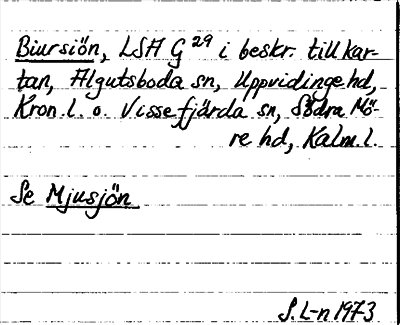 Biursiön, LSA G 29 i beskr. till kar-
tan, Algutsboda sn, Uppvidinge hd,
Kron. l. o. Vissefjärda sn, Södra Mö-
re hd, Kalm. l.
Se Mjusjön
S. L-n 1973